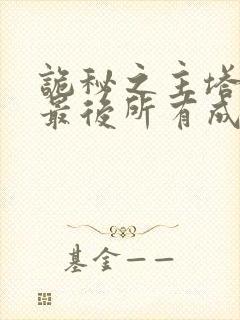 詭秘之主塔
最後所有成
基金——